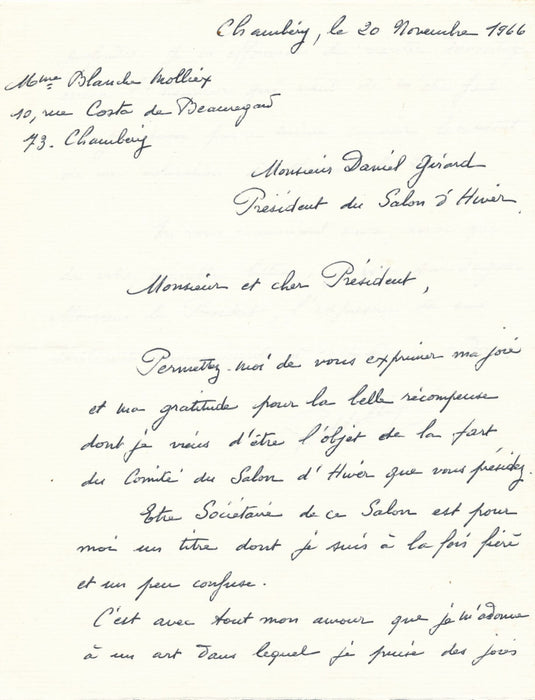 Chambéry, le 20 Novembre 1966
Mme Blanche Molliex
10, rue Costa de Beauregard
73. Chambéry
Monsieur Daniel Girard
Président du Salon d'Hiver
Monsieur et cher Président,
Permettez-moi de vous exprimer ma joie
et ma gratitude pour la belle récompense
dont je viens d'être l'objet de la part
du Comité du Salon d'Hiver que vous présidez.
Etre Sociétaire de ce Salon est pour
moi un titre dont je suis à la fois fière
et un peu confuse.
C'est avec tout mon amour que je m'adonne
à un art dans lequel je puise des joies